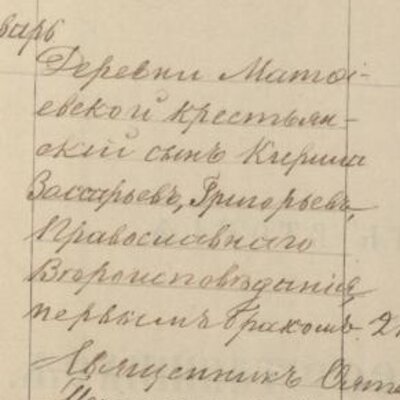 варь
Деревни Матѳі-
евской крестьян-
скій сынъ Кирила
Вассарьевъ, Григорьевъ,
Православнаго
Вѣроисповѣданія,
первымъ бракомъ. 2
Священникъ